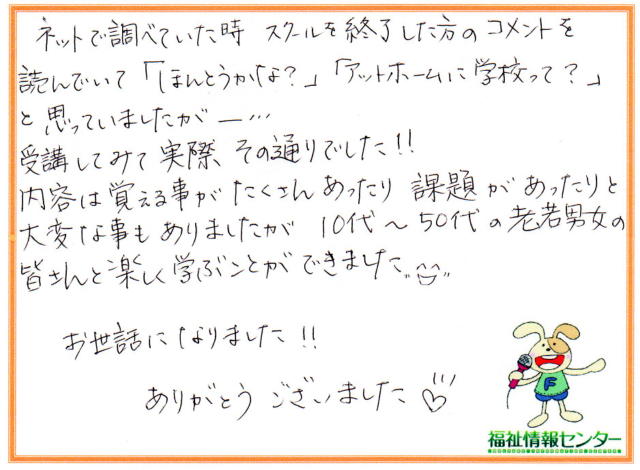 ネットで調べていた時 スクールを終了した方のコメントを
読んでいて「ほんとうかな?」「アットホームに学校って?」
と思っていましたが ー…
受講してみて実際、その通りでした!!
内容は覚える事がたくさんあったり 課題があったりと
大変な事もありましたが 10代〜50代の老若男女の
皆さんと楽しく学ぶことができました
お世話になりました!!
ありがとうございました♡
F
福祉情報センター